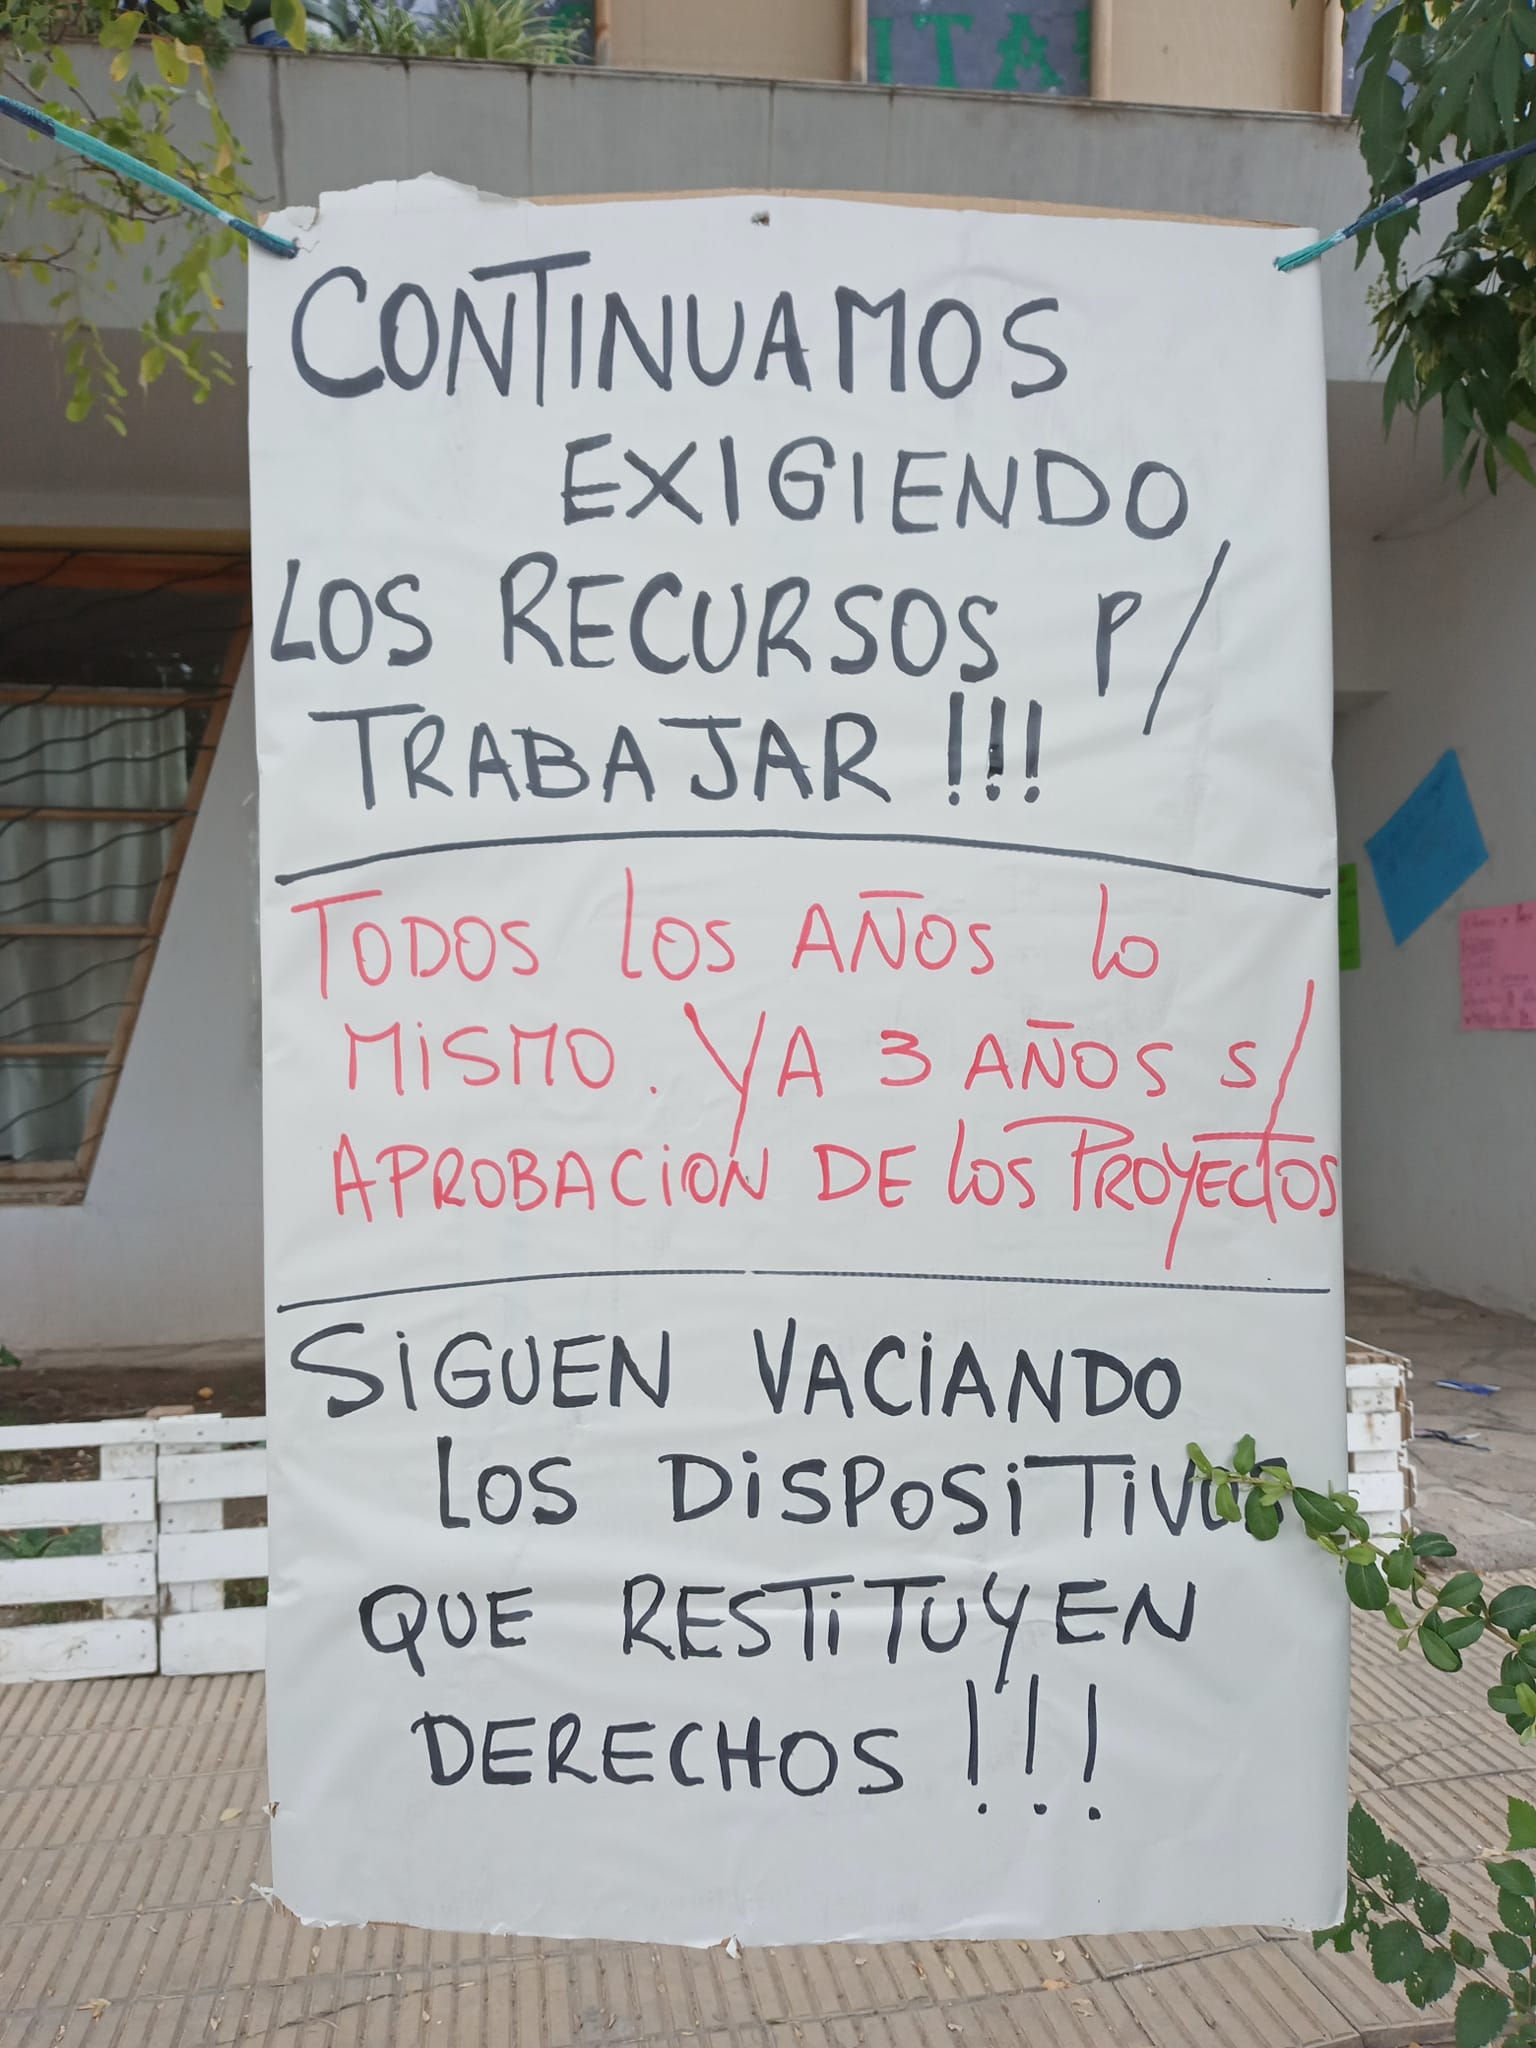 ITA
CONTINUAMOS
EXIGIENDO
LOS RECURSOS P/
TRABAJAR !!!
TODOS LOS AÑOS LO
MISMO. YA 3 AÑOS S/
APROBACION DE LOS PROYECTOS
SIGUEN VACIANDO
LOS DISPOSITIVOS
QUE RESTITUYEN
DERECHOS !!!